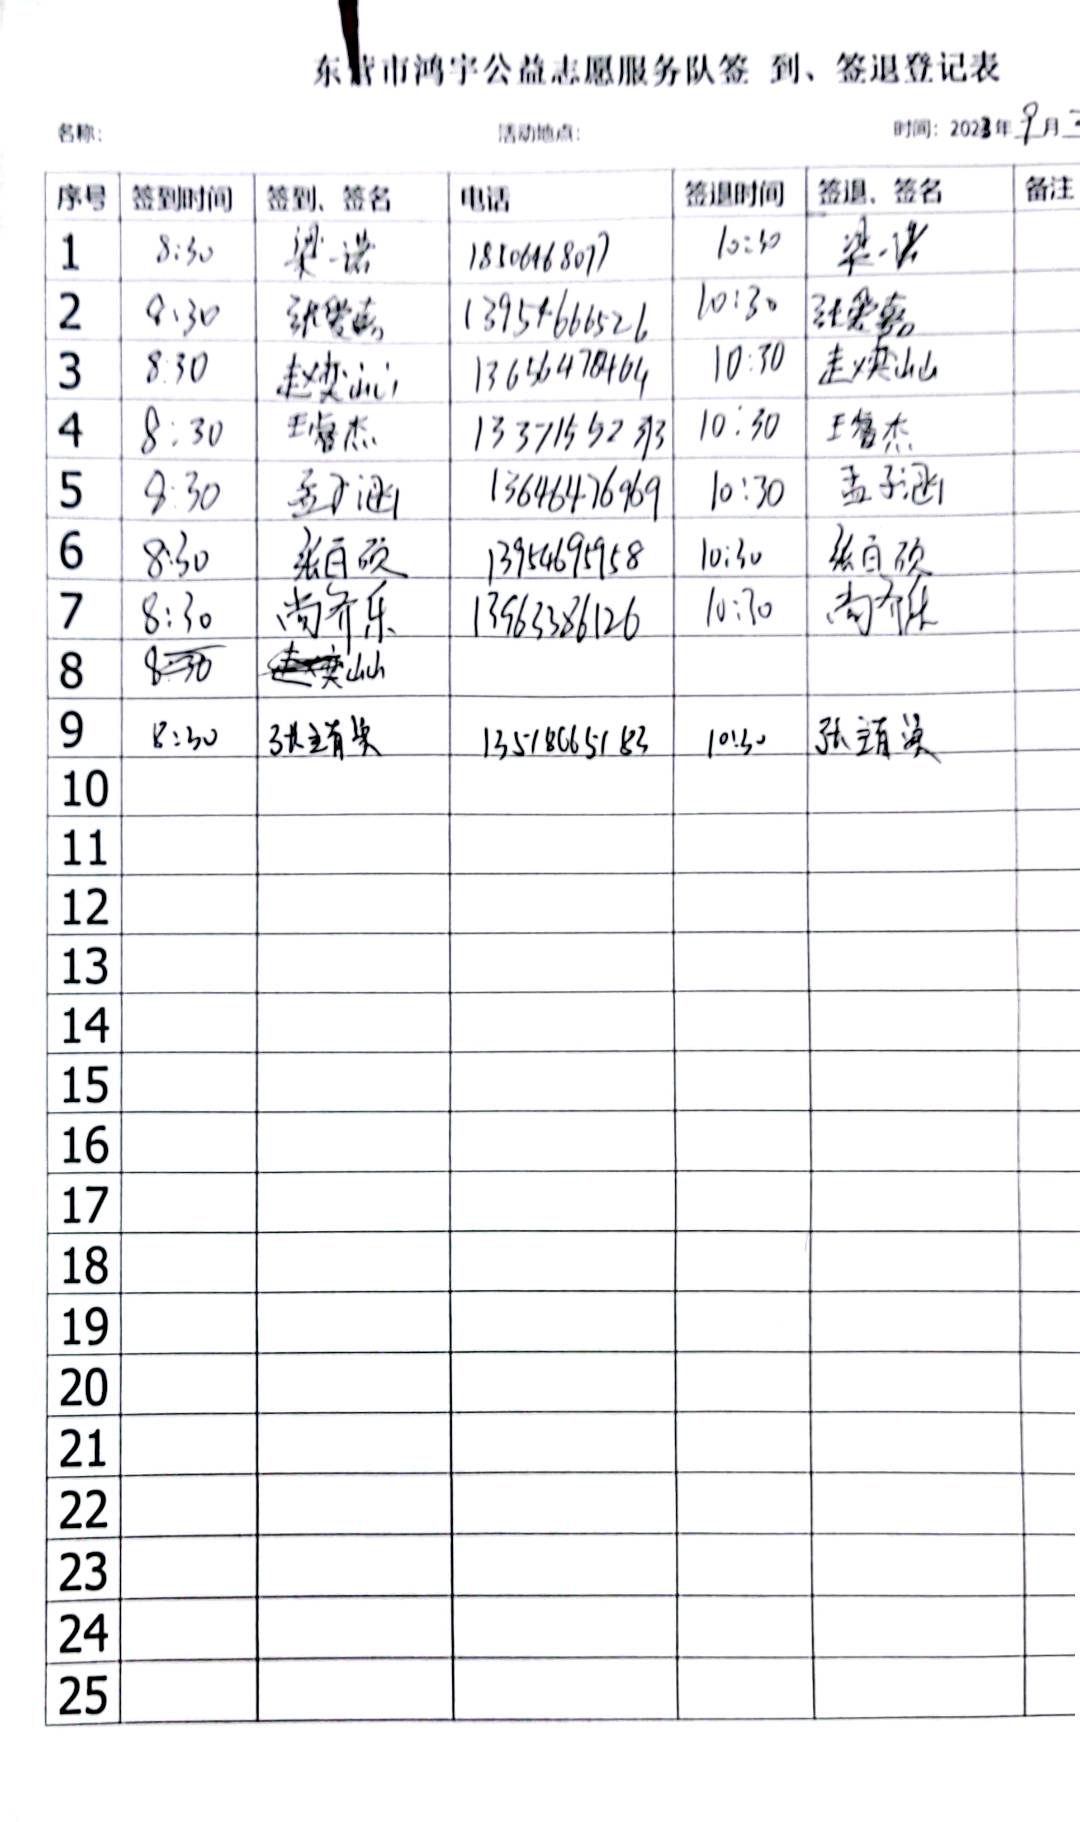 东营市鸿宇公益志愿服务队签 到、签退登记表
名称: 活动地点: 时间: 2023年9月
序号 签到时间 签到、签名 电话 签退时间 签退、签名 备注
1 8:30 梁一诺 10:30 梁一诺
2 8:30 张爱嘉 13954666526 10:30 张爱嘉
3 8:30 赵奕山 10:30 赵奕山
4 8:30 王睿杰 10:30 王睿杰
5 8:30 孟子涵 13646476969 10:30 孟子涵
6 8:30 张百硕 13954695958 10:30 张百硕
7 8:30 尚齐乐 13963386126 10:30 尚齐乐
8 8:30
9 8:30 张 13518665183 10:30 张
10
11
12
13
14
15
16
17
18
19
20
21
22
23
24
25